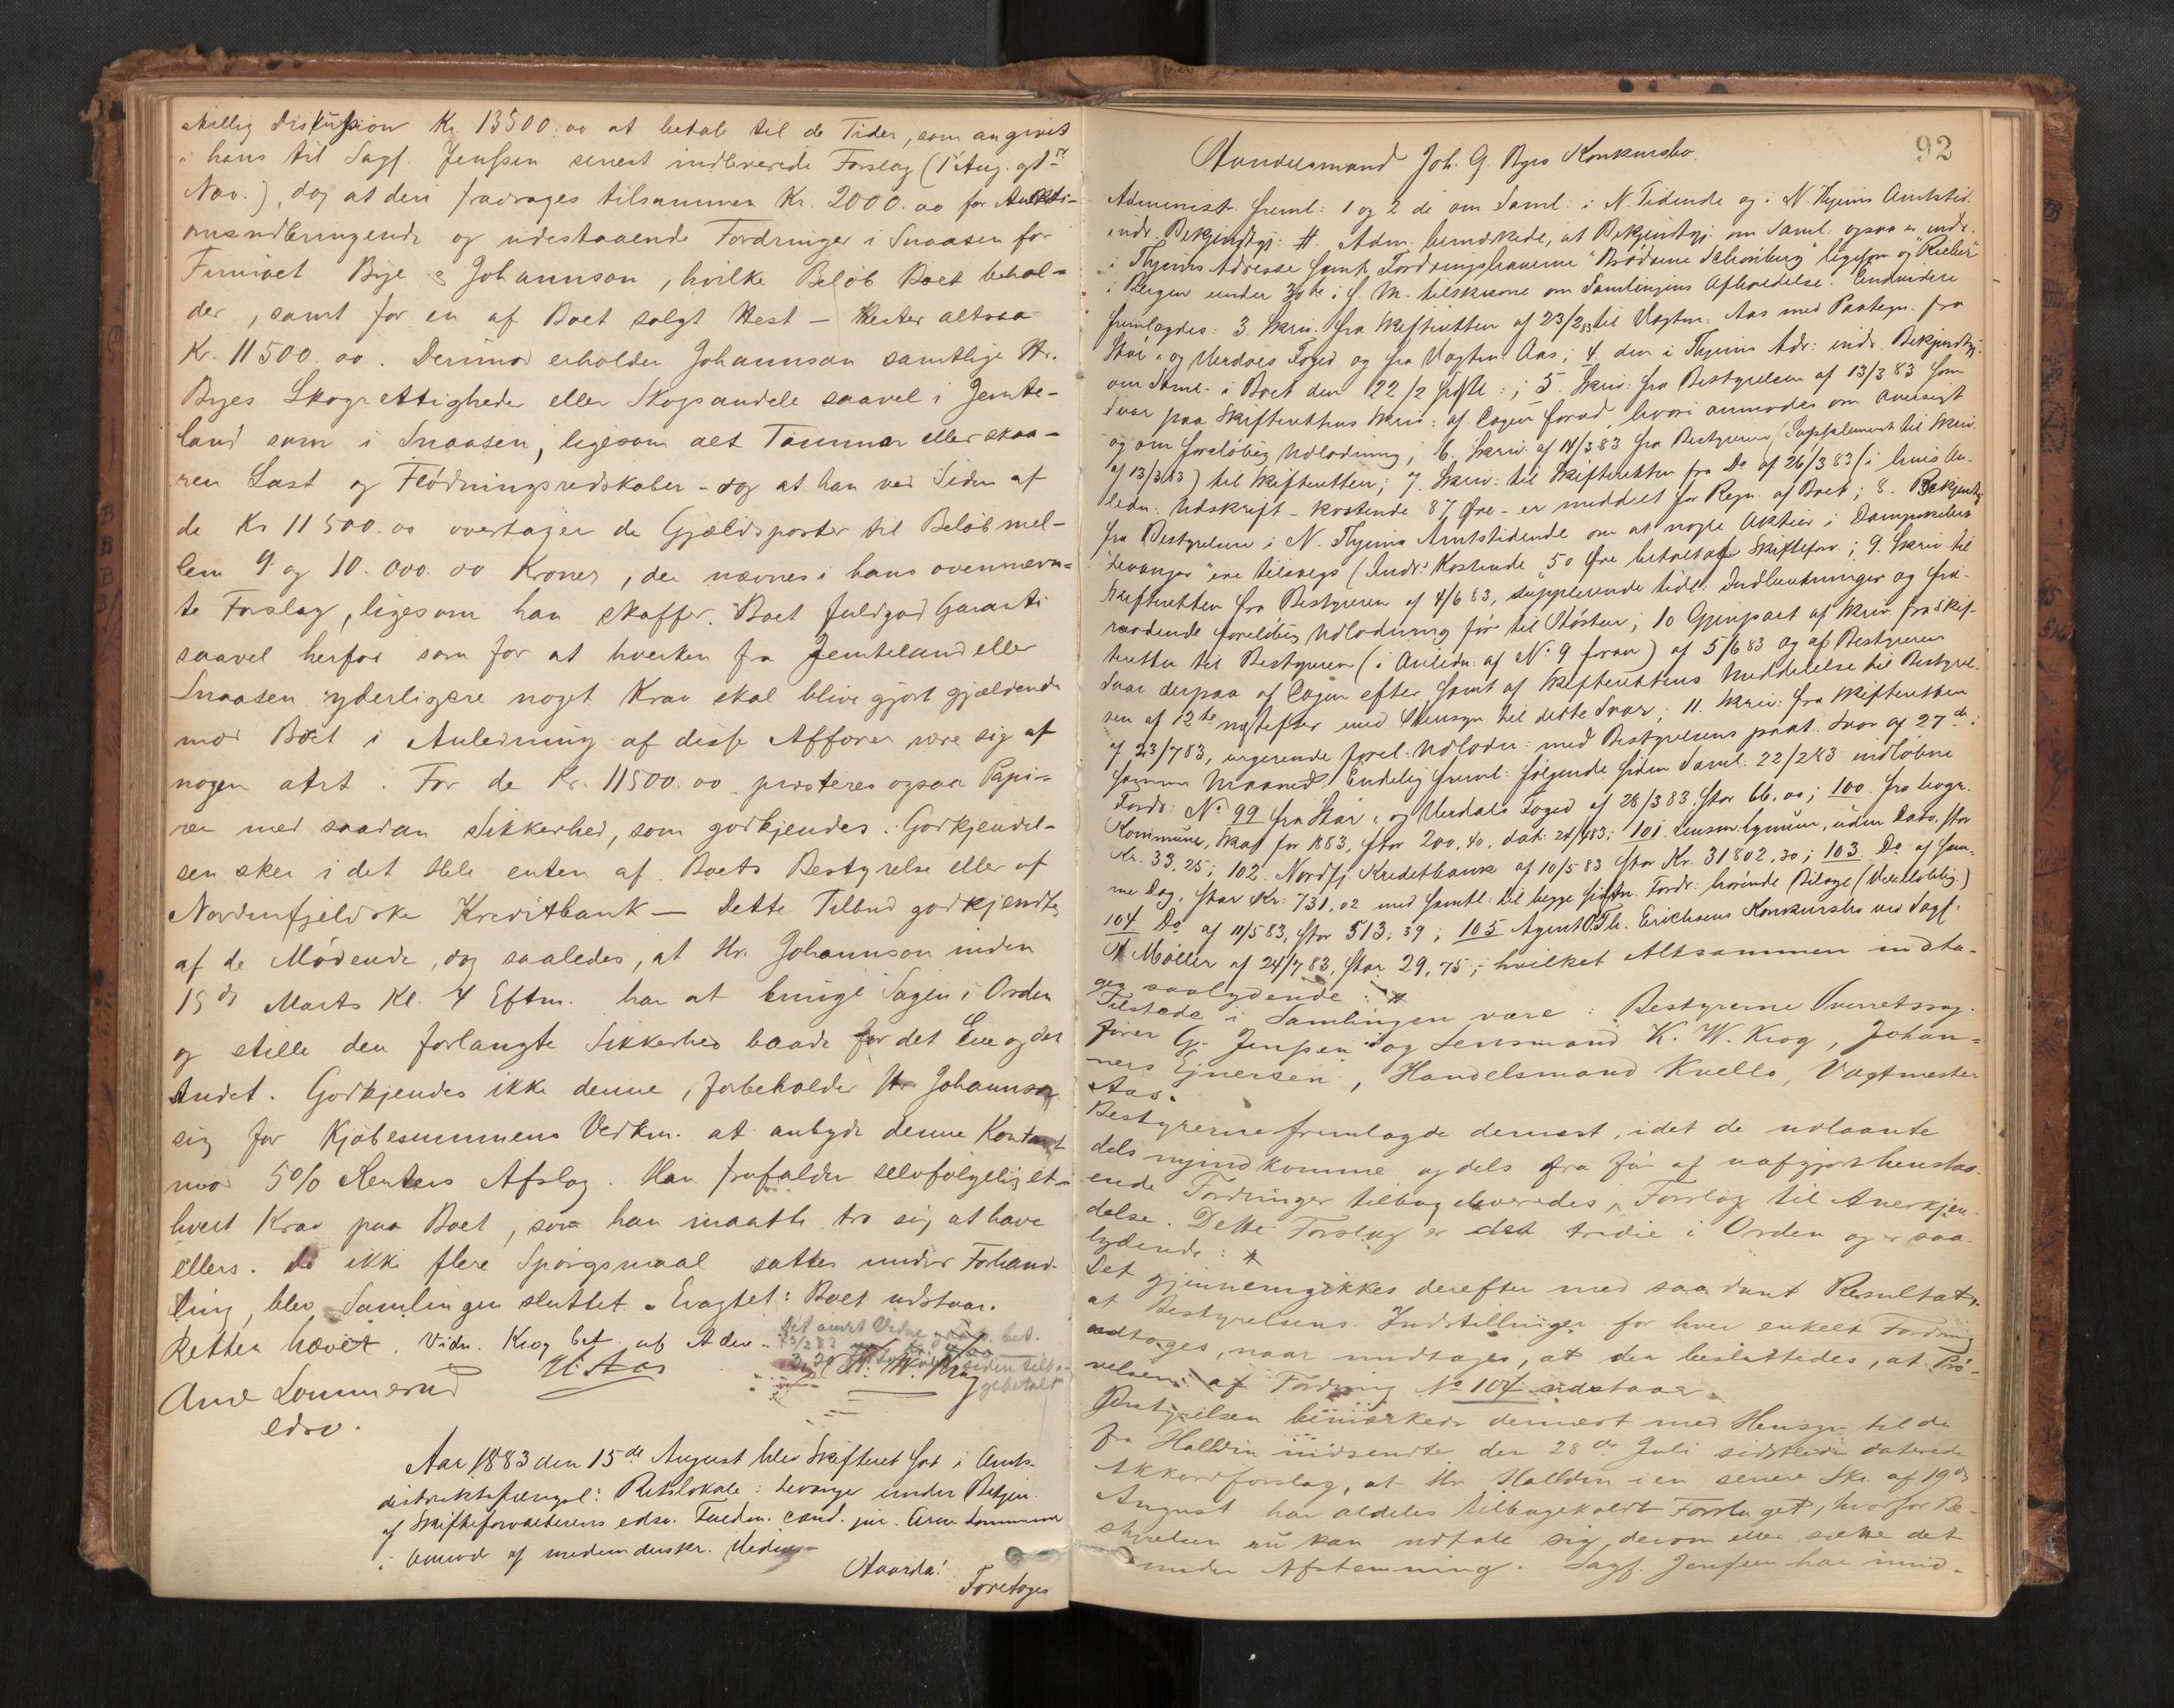 skillig Diskussion Kr. 13500.00 at betale til de Tider, som angivet
i hans til Sagf. Jenssen senest indleverede Forslag (1 Aug. og 1ste
Nov.), dog at deri fradrages tilsammen Kr. 2000.00 for Aukti-
onsindbringende og udestaaende Fordringer i Snaasen for
Firmaet Bye & Johannson, hvilke Beløb Boet behol-
der, samt for en af Boet solgt Hest – Rester altsaa
Kr. 11500.00. Derimod erholder Johannson samtlige Hr.
Byes Skogrettigheder eller Skogsandele saavel i Jemte-
land som i Snaasen, ligesom alt Tømmer eller skaa-
ren Last og Flødningsredskaber – dog at han ved Siden af
de Kr 11500.00 overtager de Gjældsposter til Beløb mel-
lem 9 og 10.000.00 Kroner, der nævnes i hans ovennævn-
te Forslag, ligesom han skaffer Boet fuldgod Garanti
saavel herfor som for at hverken fra Jemteland eller
Snaasen yderligere noget Krav skal blive gjort gjældende
mod Boet i Anledning af disse Affærer være sig af
nogen art. For de Kr. 11500.00 præsteres ogsaa Papi-
rer med saadan Sikkerhed, som godkjendes. Godkjendel-
sen sker i det Hele enten af Boets Bestyrelse eller af
Nordenfjeldske Kreditbank – Dette Tilbud godkjendtes
af de Mødende, dog saaledes, at Hr. Johannson inden
15de Marts Kl. 4 Eftm. har at bringe Sagen i Orden
og stille den forlangte Sikkerhed baade for det Ene og det
Andet. Godkjendes ikke denne, forbeholder Hr Johannson
sig for Kjøbesummens Vedkm. at anbyde denne Kontant
mod 5% Renters Afslag. Han frafalder selvfølgelig et-
hvert Krav paa Boet, som han maatte tro sig at have
ellers. Da ikke flere Spørgsmaal sattes under Forhand-
ling, blev Samlingen sluttet. Eragtet: Boet udstaar.
Retten hævet. Vidn. Krog bet. af Adm.
det andet Vidne
Arne Lommerud
U. Aas
K. W. Krog
edsv.
Aar 1883 den 15de August blev Skifteret sat i Amts-
distriktsfængsl: Retslokale: Levanger under Betjen.
af Skifteforvalterens edsv. Fuldm. cand. jur. Arne Lommerud
i Overvær af medunderskr. Vidner
Hvorda:
Foretoges
92
Handelsmand Joh. G. Byes Konkursbo.
Administr. freml: 1 og 2 de om Saml: i N. Tidende og i N. Thjems Amtstid.
indr. Bekjendtgj: # Adm. bemærkede, at Bekjendtgj. om Saml: ogsaa er indr.
i Thjems Adresse samt Fordringshaverne "Brødrene Schønberg" ligesom og "Rieber"
i Bergen under 30te i f. M. tilskrevne om Samlingens Afholdelse. Endvidere
fremlagdes: 3. Skriv. fra Skifteretten af 23/2 83 til Vagtm. Aas med Paategn. fra
Stør- og Verdals Foged og fra Vagtm. Aas; 4. den i Thjems Adr: indr. Bekjendtgj.
om Saml. i Boet den 22/2 sidstl:; 5. Skriv: fra Bestyrelsen af 13/3 83 som
Svar paa Skifterettens Skriv: af Dagen forud, hvori anmodes om Oversigt
og om foreløbig Udlodning; 6. Skriv. af 14/3 83 fra Bestyreren (Supplement til Skriv.
af 13/3 83) til Skifteretten; 7. Skriv: til Skifteretten fra Do af 26/3 83 (i hvis An-
ledn. Udskrift – kostende 87 Øre – er meddelt for Regn. af Boet; 8. Bekjendtg
fra Bestyrelsen i N. Thjems Amtstidende om at nogle Aktier i Dampskibet
"Levanger" ere tilsalgs (Indr: Kostende 50 Øre betalt af Skifteforv.; 9. Skriv til
Skifteretten fra Bestyreren af 4/6 83, supplerende tidl. Indberetninger og fra-
raadende foreløbig Udlodning før til Høsten; 10 Gjenpart af Skriv. fra Skif-
teretten til Bestyreren (i Anledn. af No 9 foran) af 5/6 83 og af Bestyrerens
Svar derpaa af Dagen efter samt af Skifterettens Meddelelse til Bestyrel-
sen af 12te næstefter med Hensyn til dette Svar; 11. Skriv: fra Skifteretten
af 23/7 83, urgerende forel. Udlodn: med Bestyrelsens paat. Svar af 27de
samme Maaned. Endelig freml: følgende siden Saml. 22/2 83 indløbne
Fordr: No 99 fra Stør- og Verdals Foged af 28/3 83 stor 66,00; 100. fra Levgr.
Kommune, Skat for 1883, stor 200,40, dat: 24/4 83; 101. Lensm: Lynum, uden Dato, stor
Kr. 33,25; 102. Nordfj. Kreditbank af 10/5 83 stor Kr. 31802,30; 103 Do af sam-
me Dag, stor Kr: 731,02 med samtl: til begge sidstn. Fordr: hørende Bilage
104 Do af 11/5 83, stor 513,39; 105 Agent O. Th. Erichsens Konkursbo ved Sagf:
A Møller af 24/7 83, stor 29,75; hvilket Altsammen indta-
ges saalydende: #
Tilstede i Samlingen vare: Bestyrerne Overretssag-
fører G. Jenssen og Lensmand K. W. Krog, Johan-
nes Ejnersen, Handelsmand Kvello, Vagtmester
Aas.
Bestyrerne fremlagde dernæst, idet de udlaante
dels nyindkomne og dels fra før af uafgjort henstaa-
ende Fordringer tilbageleveredes, Forslag til Anerkjen-
delse. Dette Forslag er det tredie i Orden og er saa-
lydende: #
Det gjennemgikkes derefter med saadant Resultat,
at Bestyrelsens Indstillinger for hver enkelt Fordring
vedtoges, naar undtages, at der besluttedes, at Prø-
velsen af Fordring No 104 udstaar.
Bestyrelsen bemærkede dernæst med Hensyn til de
fra Halldin indsendte den 28de Juli sidstleden daterede
Akkordforslag, at Hr. Halldin i en senere Skr. af 19de
August har aldeles tilbagekaldt Forslaget, hvorfor Be-
styrelsen ei kan udtale sig derom eller sætte det
under Afstemning. Sagf. Jenssen har imid-